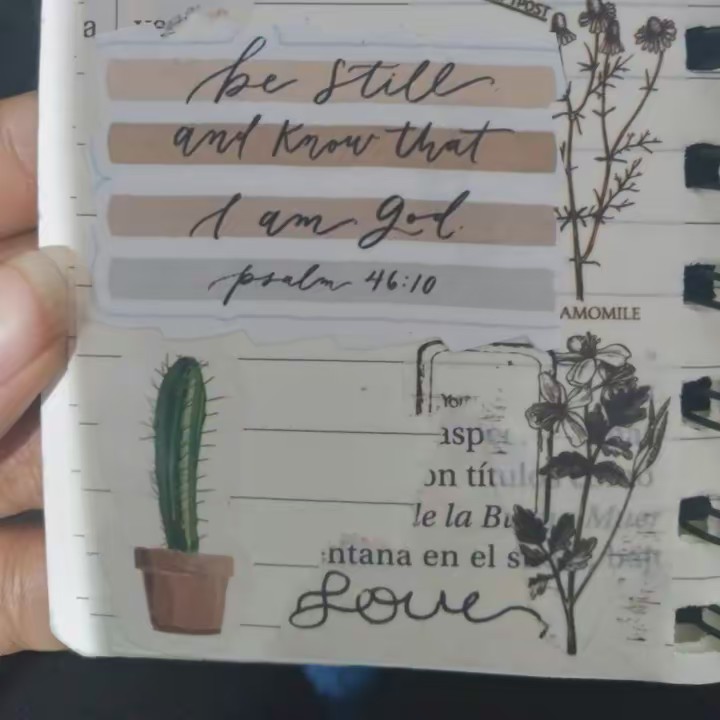 a
be still
and know that
I am God.
psalm 46:10
AMOMILE
You
asp
on títulos
de la Bu Muer
ntana en el s
Love